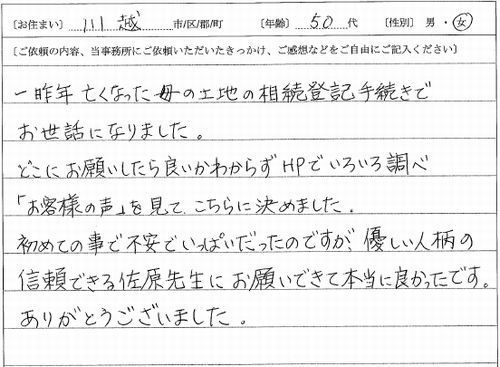 〔お住まい〕 川越 市/区/郡/町 〔年齢〕 50 代 〔性別〕 男・女
〔ご依頼の内容、当事務所にご依頼いただいたきっかけ、ご感想などをご自由にご記入ください〕
一昨年 亡くなった 母の土地の相続登記手続きで
お世話になりました。
どこにお願いしたら良いかわからず HPでいろいろ調べ
「お客様の声」を見て、こちらに決めました。
初めての事で不安でいっぱいだったのですが、優しい人柄の
信頼できる佐原先生にお願いできて本当に良かったです。
ありがとうございました。